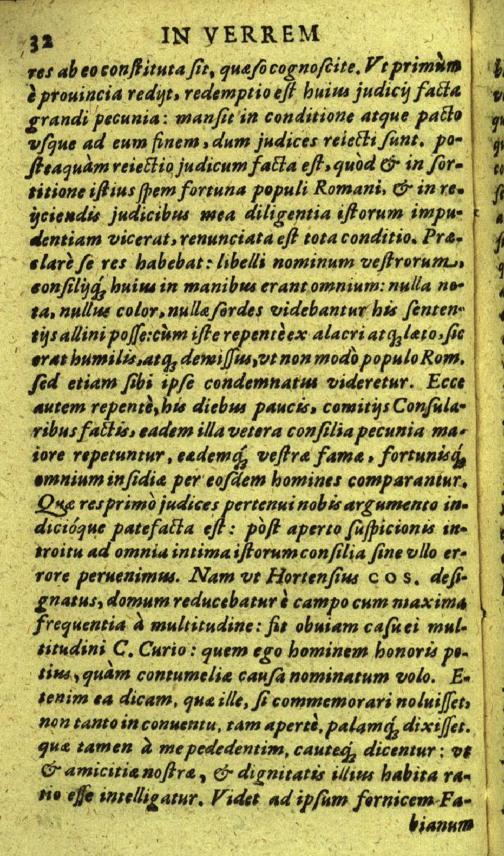 32 IN VERREM
res ab eo constituta sit, quæso cognoscite. Vt primùm
è prouincia redijt, redemptio est huius judicij facta
grandi pecunia: mansit in conditione atque pacto
vsque ad eum finem, dum judices reiecti sunt. po-
steaquàm reiectio judicum facta est, quòd & in sor-
titione istius spem fortuna populi Romani, & in re-
ijciendis judicibus mea diligentia istorum impu-
dentiam vicerat, renunciata est tota conditio. Præ-
clarè se res habebat: libelli nominum vestrorum,
consilijq́; huius in manibus erant omnium: nulla no-
ta, nullus color, nullæ sordes videbantur his senten-
tijs allini posse: cùm iste repentè ex alacri atq́; læto, sic
erat humilis, atq́; demissus, vt non modò populo Rom.
sed etiam sibi ipse condemnatus videretur. Ecce
autem repentè, his diebus paucis, comitijs Consula-
ribus factis, eadem illa vetera consilia pecunia ma-
iore repetuntur, eademq́; vestræ famæ, fortunisq́;
omnium insidiæ per eosdem homines comparantur.
Quæ res primò judices pertenui nobis argumento in-
dicióque patefacta est: pòst aperto suspicionis in-
troitu ad omnia intima istorum consilia sine vllo er-
rore peruenimus. Nam vt Hortensius COS. desi-
gnatus, domum reducebatur è campo cum maxima
frequentia à multitudine: fit obuiam casu ei mul-
titudini C. Curio: quem ego hominem honoris po-
tius, quàm contumeliæ causa nominatum volo. E-
tenim ea dicam, quæ ille, si commemorari noluisset,
non tanto in conuentu, tam apertè, palamq́; dixisset.
quæ tamen à me pedetentim, cauteq́; dicentur: vt
& amicitiæ nostræ, & dignitatis illius habita ra-
tio esse intelligatur. Videt ad ipsum fornicem Fa-
bianum